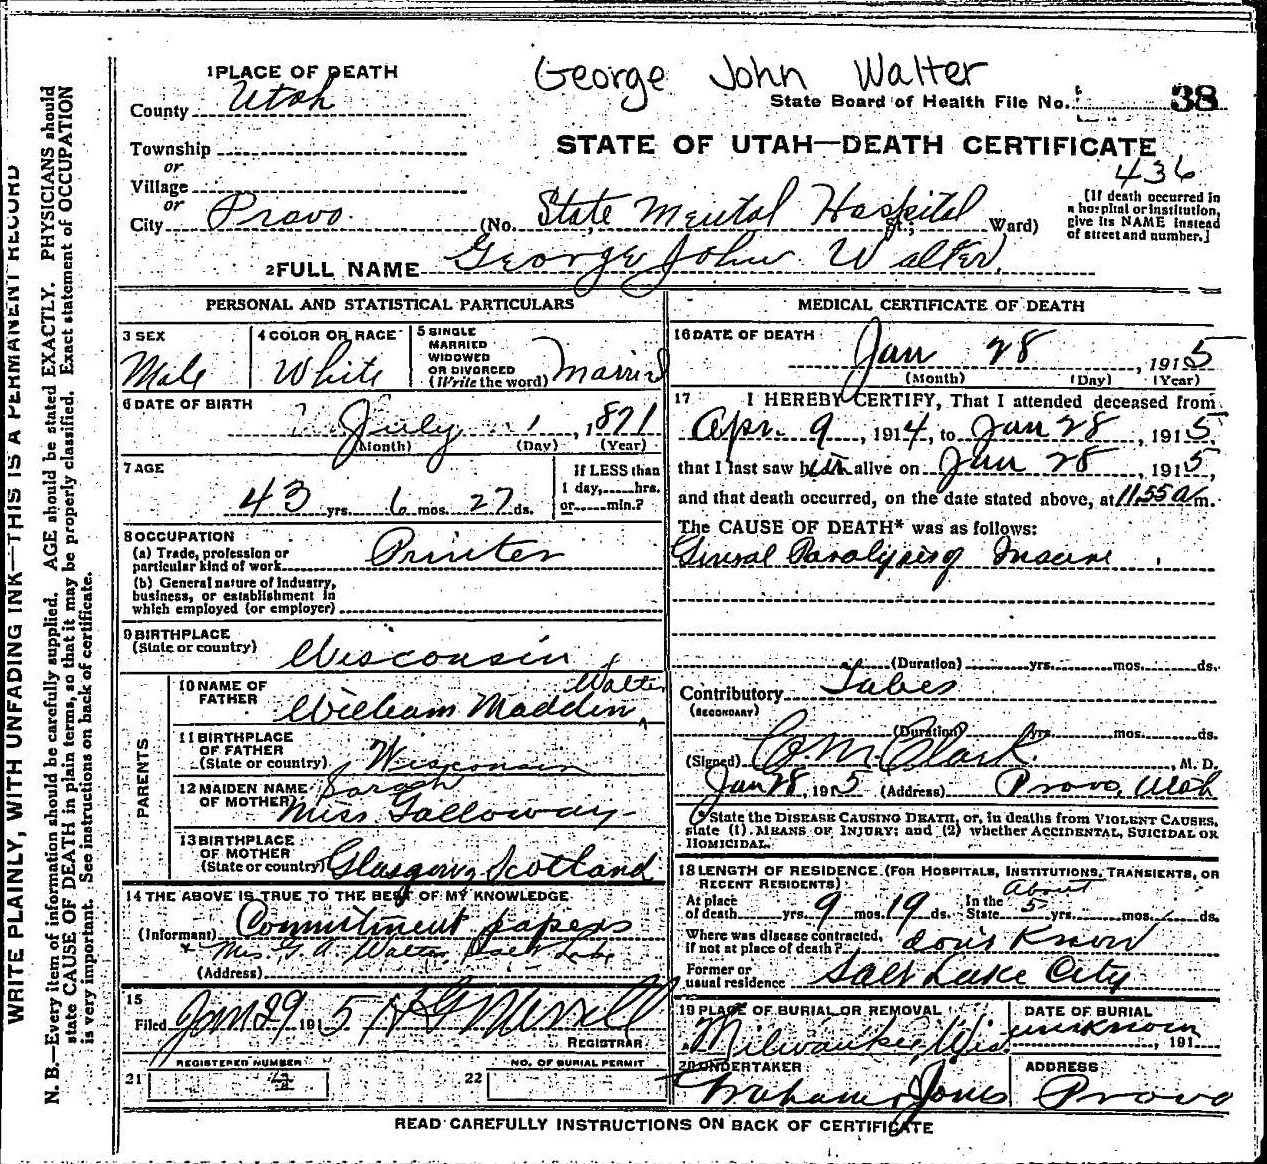 George John Walter
1 PLACE OF DEATH
State Board of Health File No. 38
County Utah
STATE OF UTAH—DEATH CERTIFICATE
436
Township
or
Village
or
City Provo (No. State Mental Hospital St.; Ward)
[If death occurred in
a hospital or institution,
give its NAME instead
of street and number.]
2 FULL NAME George John Walter
PERSONAL AND STATISTICAL PARTICULARS
3 SEX
Male
4 COLOR OR RACE
White
5 SINGLE
MARRIED
WIDOWED
OR DIVORCED
(Write the word) Married
6 DATE OF BIRTH
July 1, 1871
(Month) (Day) (Year)
7 AGE
43 yrs. 6 mos. 27 ds.
If LESS than
1 day, hrs.
or min.?
8 OCCUPATION
(a) Trade, profession or
particular kind of work Printer
(b) General nature of industry,
business, or establishment in
which employed (or employer)
9 BIRTHPLACE
(State or country) Wisconsin
PARENTS
10 NAME OF
FATHER William Madden Walter
11 BIRTHPLACE
OF FATHER
(State or country) Wisconsin
12 MAIDEN NAME
OF MOTHER Sarah
Miss Galloway
13 BIRTHPLACE
OF MOTHER
(State or country) Glasgow, Scotland
14 THE ABOVE IS TRUE TO THE BEST OF MY KNOWLEDGE
(Informant) Commitment papers
& Mrs. G. A. Walter, Salt Lake
(Address)
15
Filed Jan 29 1915 Merrell
REGISTRAR
REGISTERED NUMBER
21
NO. OF BURIAL PERMIT
22
MEDICAL CERTIFICATE OF DEATH
16 DATE OF DEATH
Jan 28, 1915
(Month) (Day) (Year)
17 I HEREBY CERTIFY, That I attended deceased from
Apr. 9, 1914, to Jan 28, 1915,
that I last saw him alive on Jan 28, 1915,
and that death occurred, on the date stated above, at 11.55 a m.
The CAUSE OF DEATH* was as follows:
General Paralysis of Insane
(Duration) yrs. mos. ds.
Contributory Tabes
(SECONDARY)
(Duration) yrs. mos. ds.
(Signed) Clark, M. D.
Jan 28, 1915 (Address) Provo, Utah
*State the DISEASE CAUSING DEATH, or, in deaths from VIOLENT CAUSES,
state (1) MEANS OF INJURY; and (2) whether ACCIDENTAL, SUICIDAL OR
HOMICIDAL.
18 LENGTH OF RESIDENCE (FOR HOSPITALS, INSTITUTIONS, TRANSIENTS, OR
RECENT RESIDENTS)
At place
of death yrs. 9 mos. 19 ds.
In the
State About 5 yrs. mos. ds.
Where was disease contracted,
if not at place of death? don't Know
Former or
usual residence Salt Lake City
19 PLACE OF BURIAL OR REMOVAL
Milwaukee, Wis.
DATE OF BURIAL
unknown, 191
20 UNDERTAKER
Graham Jones
ADDRESS
Provo
READ CAREFULLY INSTRUCTIONS ON BACK OF CERTIFICATE
WRITE PLAINLY, WITH UNFADING INK—THIS IS A PERMANENT RECORD
N. B.—Every item of information should be carefully supplied. AGE should be stated EXACTLY. PHYSICIANS should
state CAUSE OF DEATH in plain terms, so that it may be properly classified. Exact statement of OCCUPATION
is very important. See instructions on back of certificate.